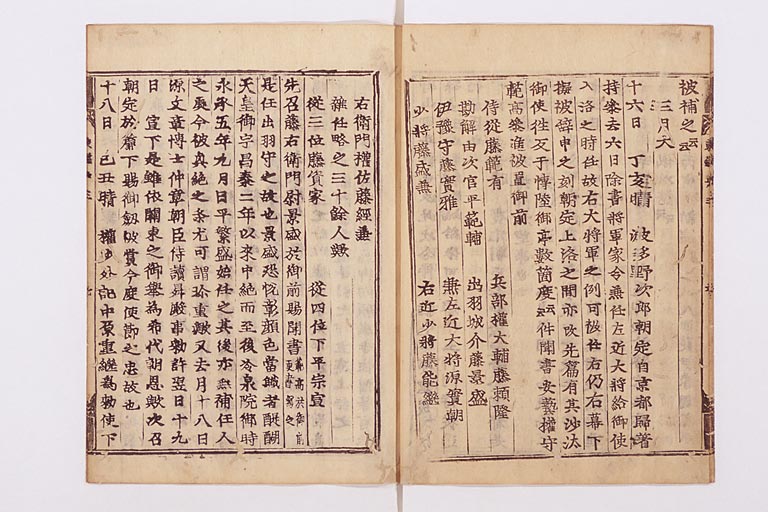 被補之云云
三月大
十六日 丁亥晴 波多野次郎朝定自京都歸著
持參去六日除書將軍家令兼任左近大將給御使
入洛之時任故右大將軍之例可被任右仍右幕下
擬被辭申之刻朝定上洛之間亦改先篇有其沙汰
御使徃反于博陸御亭數箇度云云件聞書安藝權守
範高參進披置御前
侍從藤範有 兵部權大輔藤賴隆
勘解由次官平範輔 出羽城介藤景盛
伊豫守藤實雅 兼左近大將源實朝
少將藤盛兼 右近少將藤能繼
右衛門權佐藤經兼
雜任略之三十餘人歟
從三位藤實家 從四位下平宗宣
先召藤右衛門尉景盛於御前賜聞書範高於御前更書寫之
是任出羽守之故也景盛恐恱彰顏色當職者醍醐
天皇御字昌泰二年以來中絶而至後冷泉院御時
永承五年九月日平繁盛始任之其後亦無補任人
之處今被興絶之条尤可謂珍重歟又去月十八日
源文章博士仲章朝臣侍讀昇殿事勅許翌日十九
日 宣下是雖依關東之御擧爲希代朝恩歟次召
朝定於簾下賜御釼被賞今度使節之忠故也
十八日 己丑晴 權少外記中原重繼爲勅使下